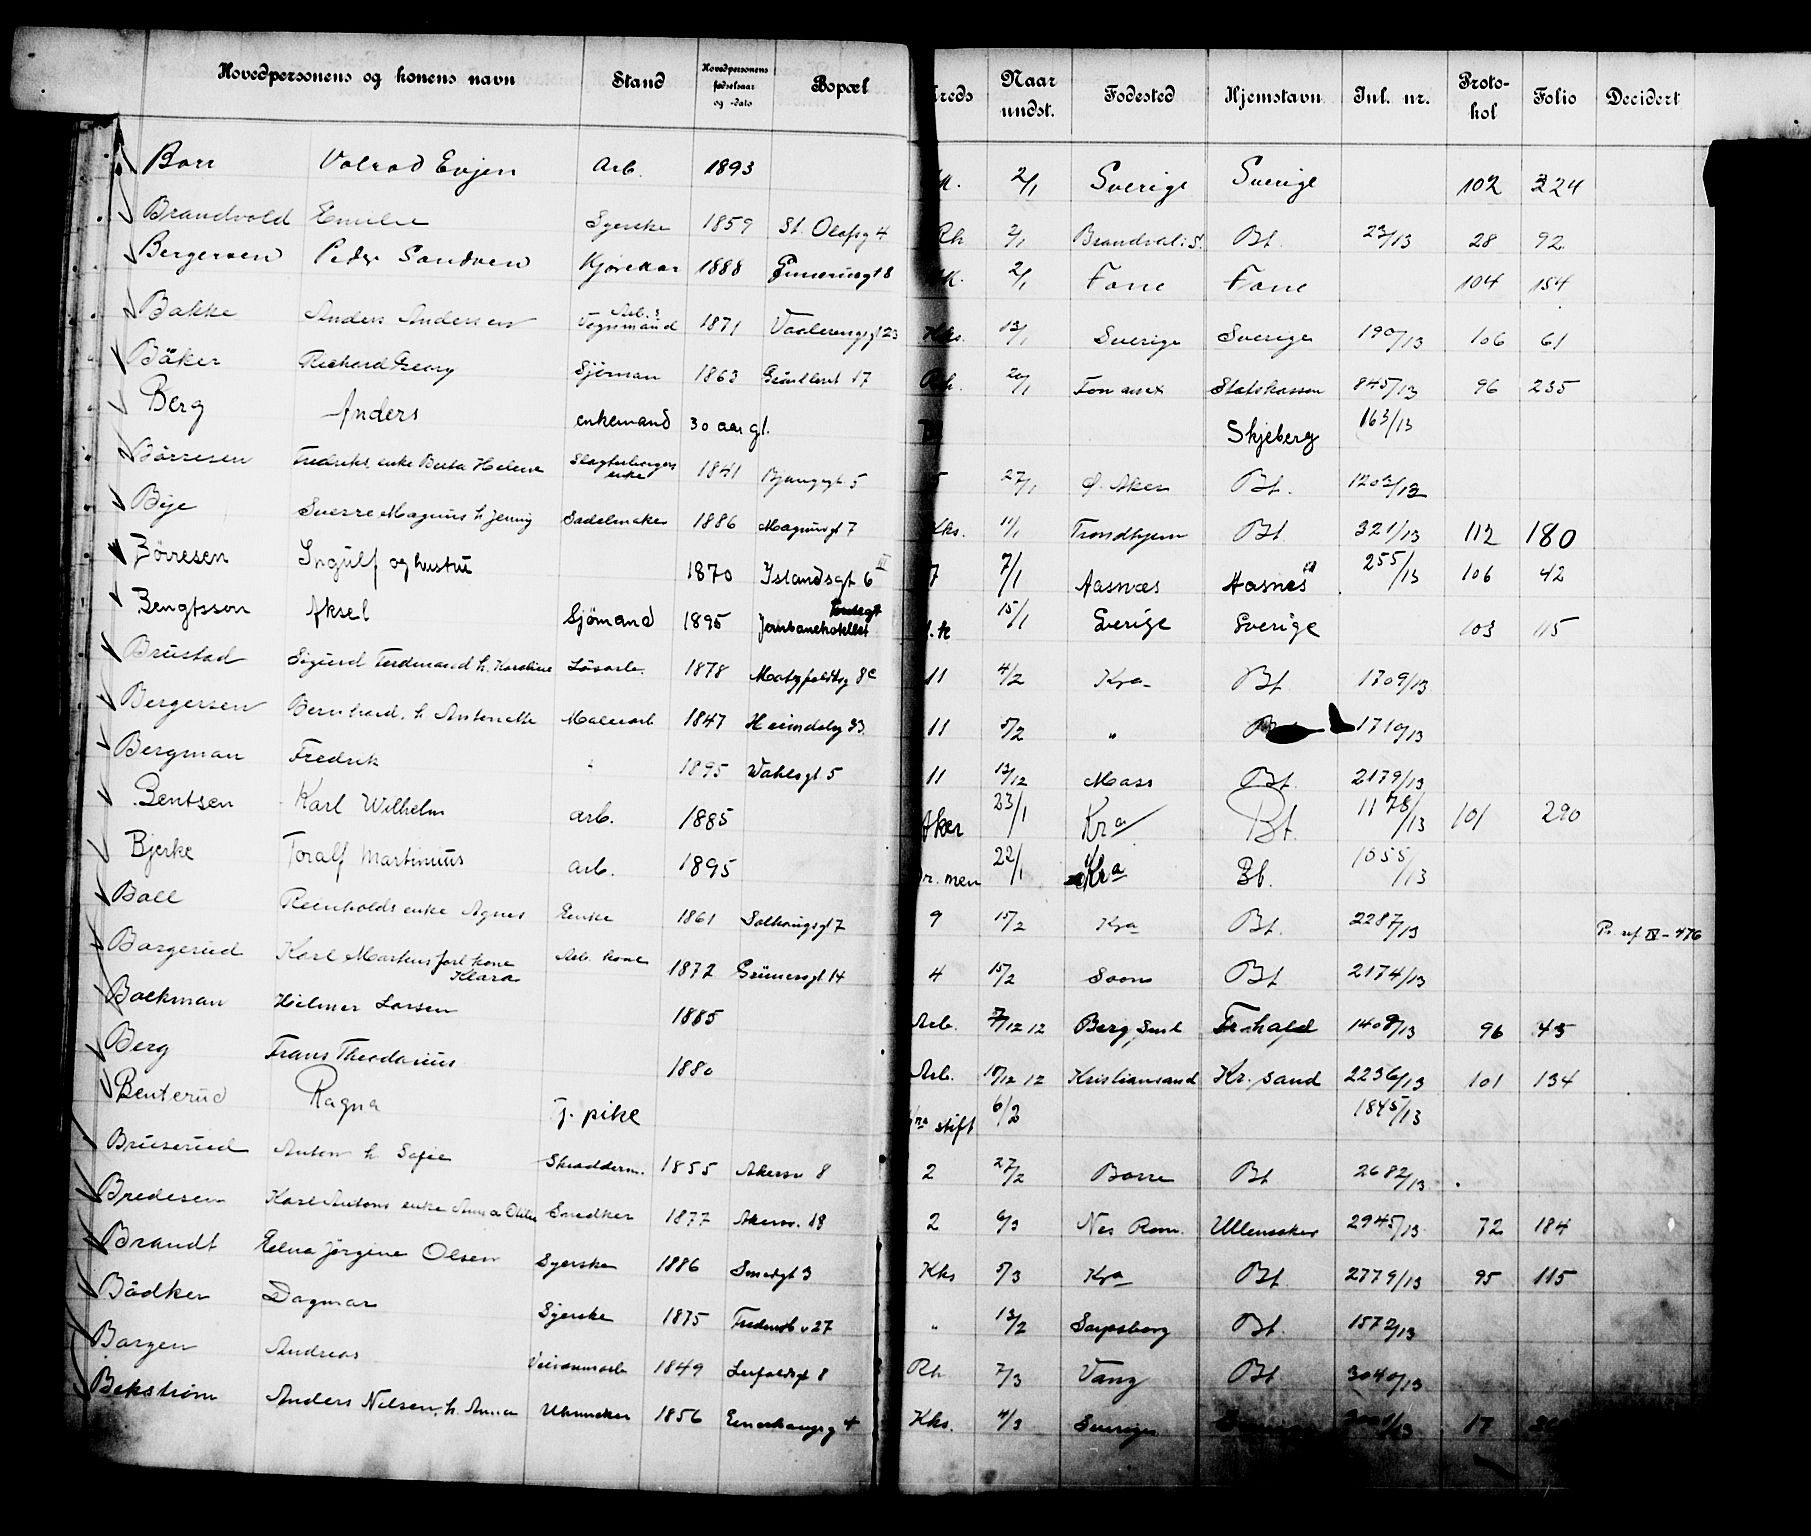 Hovedpersonens og konens navn Stand Hovedpersonens fødselsaar og -dato Bopæl Kreds Naar undst. Fødested Hjemstavn Inl. nr. Protokol Folio Decidert
Borr Volrad Evjen Arb. 1893 2/1 Sverige Sverige 102 324
Brandvold Emilie Syerske 1859 St. Olafsg 4 Rh 2/1 Bt. 23/13 28 92
Bergersen Peder Sandven Kjørekar 1888 2/1 Fane Fane 104 154
Bakke Anders Andersen Arb. & Vognmand 1871 Vaalerenggt 23 Kks. 13/1 Sverige Sverige 190/13 106 61
Bäker Richard Georg Sjöman 1863 17 Rh. 20/1 Statskassen 845/13 96 235
Berg Anders enkemand 30 aar gl. Skjeberg 163/13
Börresen Fredriks enke Berta Helene enke 1841 5 5 27/1 Ø. Aker Bt. 1203/13
Bye Sverre Magnus h. Jenny Sadelmaker 1886 Magnusgt 7 Kks. 11/1 Trondhjem Bt 321/13 112 180
Börresen Ingulf og hustru 1870 Islandsgt 6 III 7 7/1 Aasnes Aasnes 255/13 106 42
Bengtsson Aksel Sjömand 1895 Jernbanehotellet 15/1 Sverige Sverige 103 115
Brustad Sigurd Ferdinand h. Karoline Løsarb. 1878 8c 11 4/2 Kra Bt. 1709/13
Bergersen Bernhard, h Antonette Malerarb 1847 Heimdalsg 33 11 5/2 " Bt 1710/13
Bergman Fredrik " 1895 Wahlsgt 5 11 13/12 Moss Bt. 2179/13
Bentsen Karl Wilhelm arb. 1885 Aker 23/1 Kra Bt. 1178/13 101 290
Bjerke Toralf Martinius arb. 1895 Dr. men 22/1 Kra Bt. 1055/13
Boll Reinholds enke Agnes Enke 1861 7 9 15/2 Kra Bt. 2287/13 IV - 476
Borgerud Karl Markus forl. kone Klara Arb. kone 1872 Grünersgt 14 4 15/2 Bt 2174/13
Backman Hilmer Larsen 1885 Arb. 7/12 12 Berg Sml Frhald 1408/13 96 45
Berg Frans Theodorius 1880 Arb. 17/12 12 Kristiansand Kr. sand 2236/13 101 134
Benterud Ragna Tj. pike Kra stift 6/2 1845/13
Bruserud Anton h. Sofie Skradderm. 1855 Akersv 8 2 27/2 Borre Bt 2682/13
Bredesen Karl Antons enke Anna Snedker 1877 Akersv. 18 2 6/3 Nes Rom. Ullensaker 2945/13 72 184
Brandt Edna Jörgine Olsen Syerske 1886 Smedgt 3 Kks 5/3 Kra Bt. 2779/13 95 115
Bödker Dagmar Syerske 1875 27 " 13/2 Sarpsborg Bt. 1572/13
Borgen Andreas 1849 8 Rh 7/3 Vang Bt 3040/13
Bekström Anders Nilsen, h. Anna 1856 4 Kks. 4/3 Sverige 17